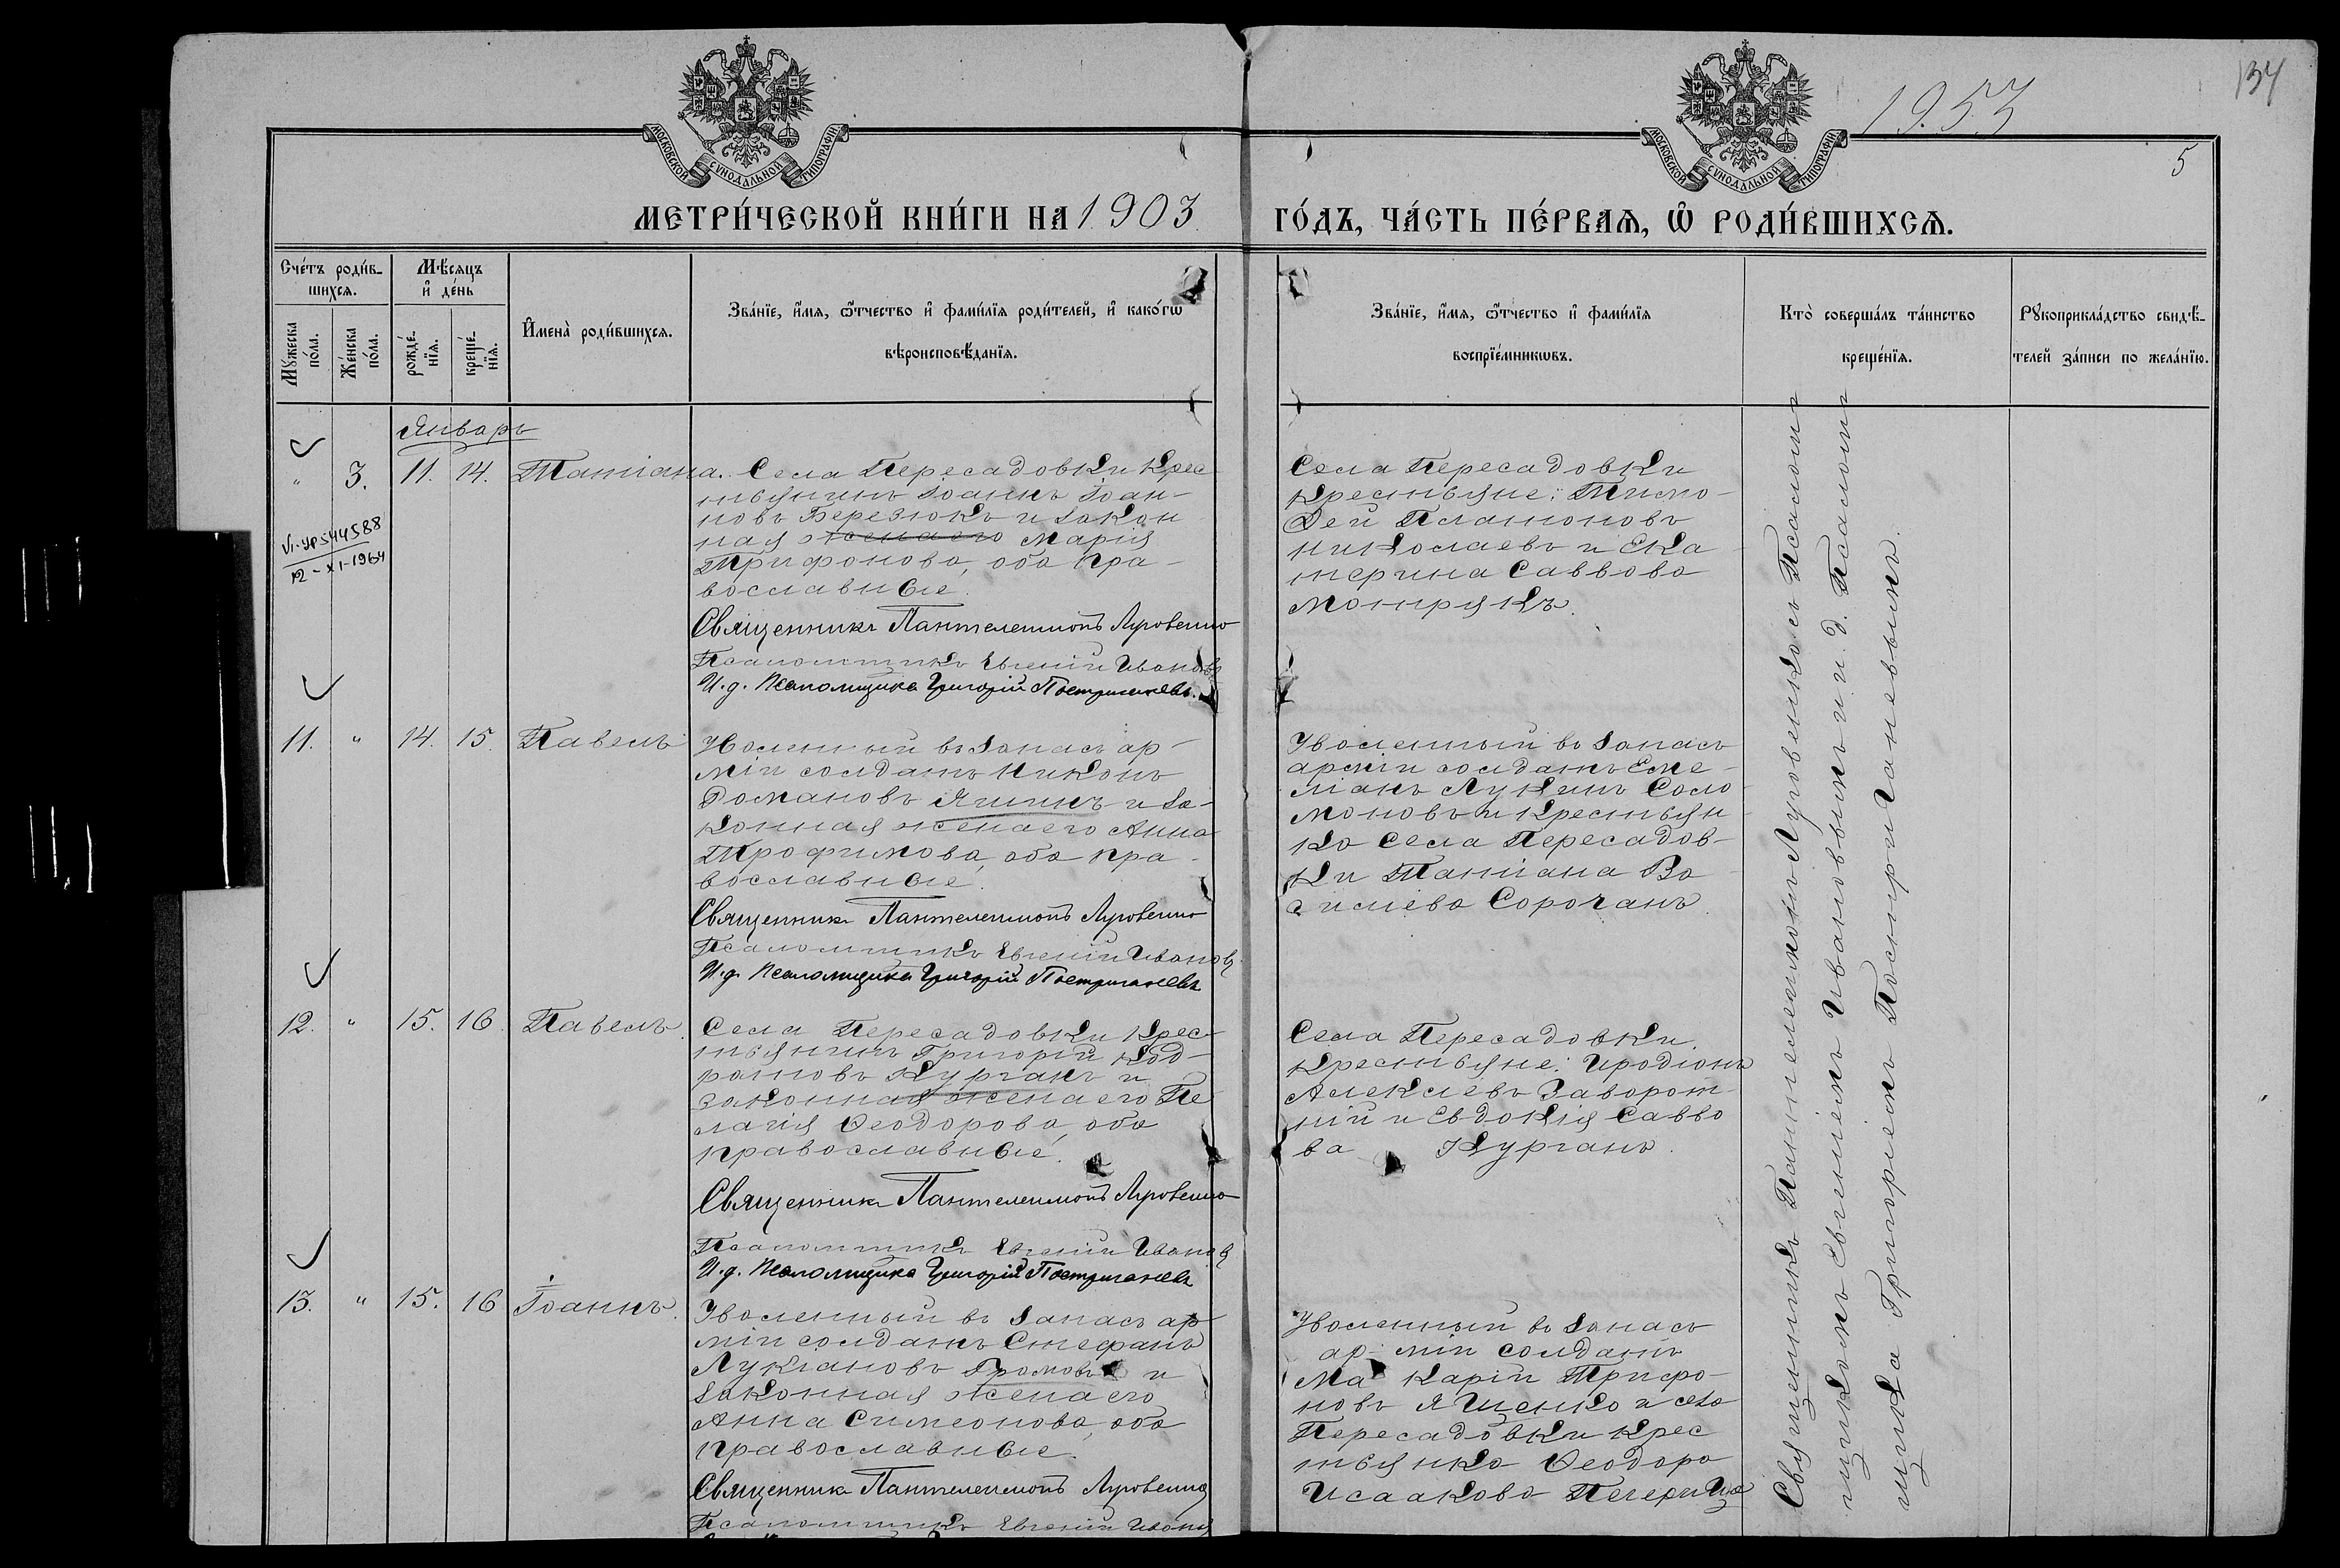 134
19.5.3
5
МОСКОВСКОЙ СѴНОДАЛЬНОЙ ТИПОГРАФІИ
МОСКОВСКОЙ СѴНОДАЛЬНОЙ ТИПОГРАФІИ
МЕТРИ́ЧЕСКОЙ КНИ́ГИ НА 1903
ГО́ДЪ, ЧА́СТЬ ПЕ́РВАѦ, Ѡ҆ РОДИ́ВШИХСѦ.
Сче́тъ роди́в-
шихсѧ.
Мꙋ́жеска по́ла.
Же́нска по́ла.
Мѣ́сѧцъ
и҆ де́нь
рожде́-
нїѧ.
креще́-
нїѧ.
И҆мена̀ роди́вшихсѧ.
Зва́нїе, и҆́мѧ, ѻ҆́тчество и҆ фами́лїѧ роди́телей, и҆ како́гѡ
вѣроисповѣ́данїѧ.
Зва́нїе, и҆́мѧ, ѻ҆́тчество и҆ фами́лїѧ
воспрїе́мникѡвъ.
Кто̀ соверша́лъ та́инство
креще́нїѧ.
Рꙋкоприкла́дство свидѣ́-
телей за́писи по жела́нїю.
Январь
" 3. 11. 14. Татіана.
Села Пересадовки крес-
тьянинъ Іоаннъ Іоан-
новъ Березюкъ и закон
ная жена его Марія
Трифонова, оба пра-
вославные.
Священникъ Пантелеимонъ Луговенко
Псаломщикъ Евгеній Ивановъ
И. д. Псаломщика Григорій Постригачевъ.
Села Пересадовки
крестьяне: Тимо-
ѳей Платоновъ
Николаевъ и Ека
терина Саввова
Мотрукъ.
12-XI-1964
11. " 14. 15. Павелъ
Уволенный въ запасъ ар-
міи солдатъ Никонъ
Романовъ Яшинъ и за-
конная жена его Анна
Трофимова, оба пра-
вославные.
Священникъ Пантелеимонъ Луговенко
Псаломщикъ Евгеній Ивановъ
И. д. Псаломщика Григорій Постригачевъ
Уволенный въ запасъ
арміи солдатъ Еме-
ліанъ Лукинъ Соло-
моновъ и крестьян
ка села Пересадов-
ки Татіана Ва
силіева Сорочанъ.
12. " 15. 16. Павелъ.
Села Пересадовки крес-
тьянинъ Григорій Код-
ратовъ Курганъ и
законная жена его Пе
лагія Ѳеодорова, оба
православные.
Священникъ Пантелеимонъ Луговенко
Псаломщикъ Евгеній Ивановъ
И. д. Псаломщика Григорій Постригачевъ
Села Пересадовки
крестьяне: Иродіонъ
Алексіевъ Заворот
ній и Евдокія Савво
ва Курганъ.
13. " 15. 16 Іоаннъ.
Уволенный въ запасъ ар-
міи солдатъ Стефанъ
Лукіановъ Громовъ и
законная жена его
Анна Симеонова, оба
православные.
Священникъ Пантелеимонъ Луговенко
Псаломщикъ Евгеній Ивановъ
Уволенный въ запасъ
ар-міи солдатъ
Макарій Трифо-
новъ Яшенко и села
Пересадовки крес
тьянка Ѳеодора
Исаакова Печерица
Священникъ Пантелеимонъ Луговенко съ Псалом
щикомъ Евгеніемъ Ивановымъ и и. д. Псалом
щика Григоріемъ Постригачевымъ.